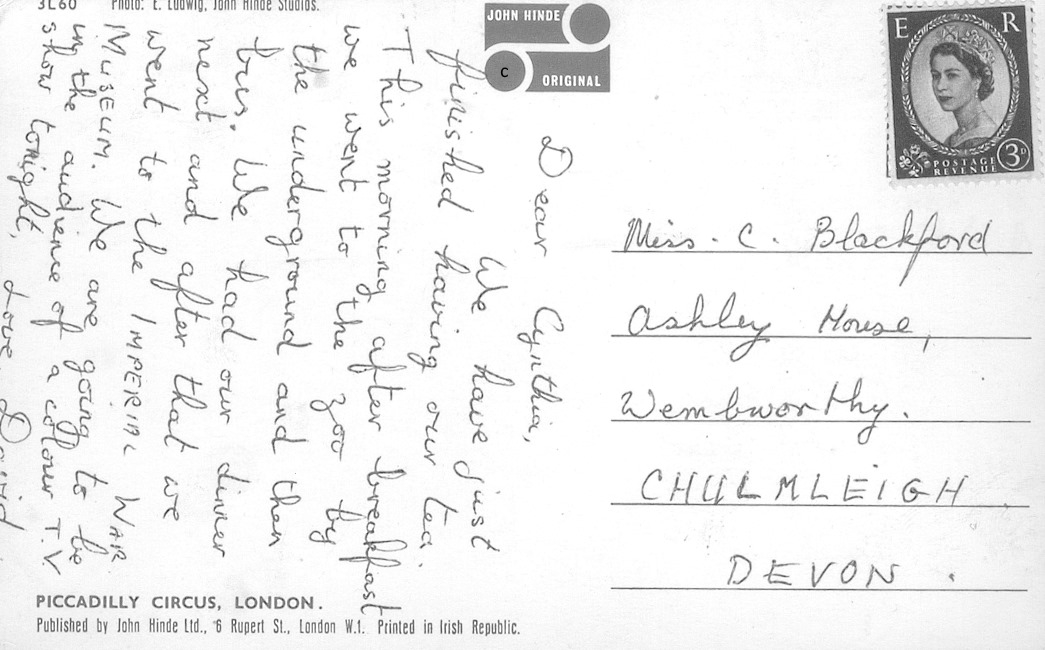 3L60 Photo: E. Ludwig, John Hinde Studios.
JOHN HINDE
C
ORIGINAL
E R
POSTAGE
REVENUE
3D
Dear Cynthia,
We have just
finished having our tea.
This morning after breakfast
we went to the zoo by
the underground and then
bus. We had our dinner
next and after that we
went to the IMPERIAL WAR
MUSEUM. We are going to be
in the audience of a colour T.V
show tonight,
Love David
Miss. C. Blackford
Ashley House,
Wembworthy.
CHULMLEIGH
DEVON.
PICCADILLY CIRCUS, LONDON.
Published by John Hinde Ltd., 6 Rupert St., London W.1. Printed in Irish Republic.